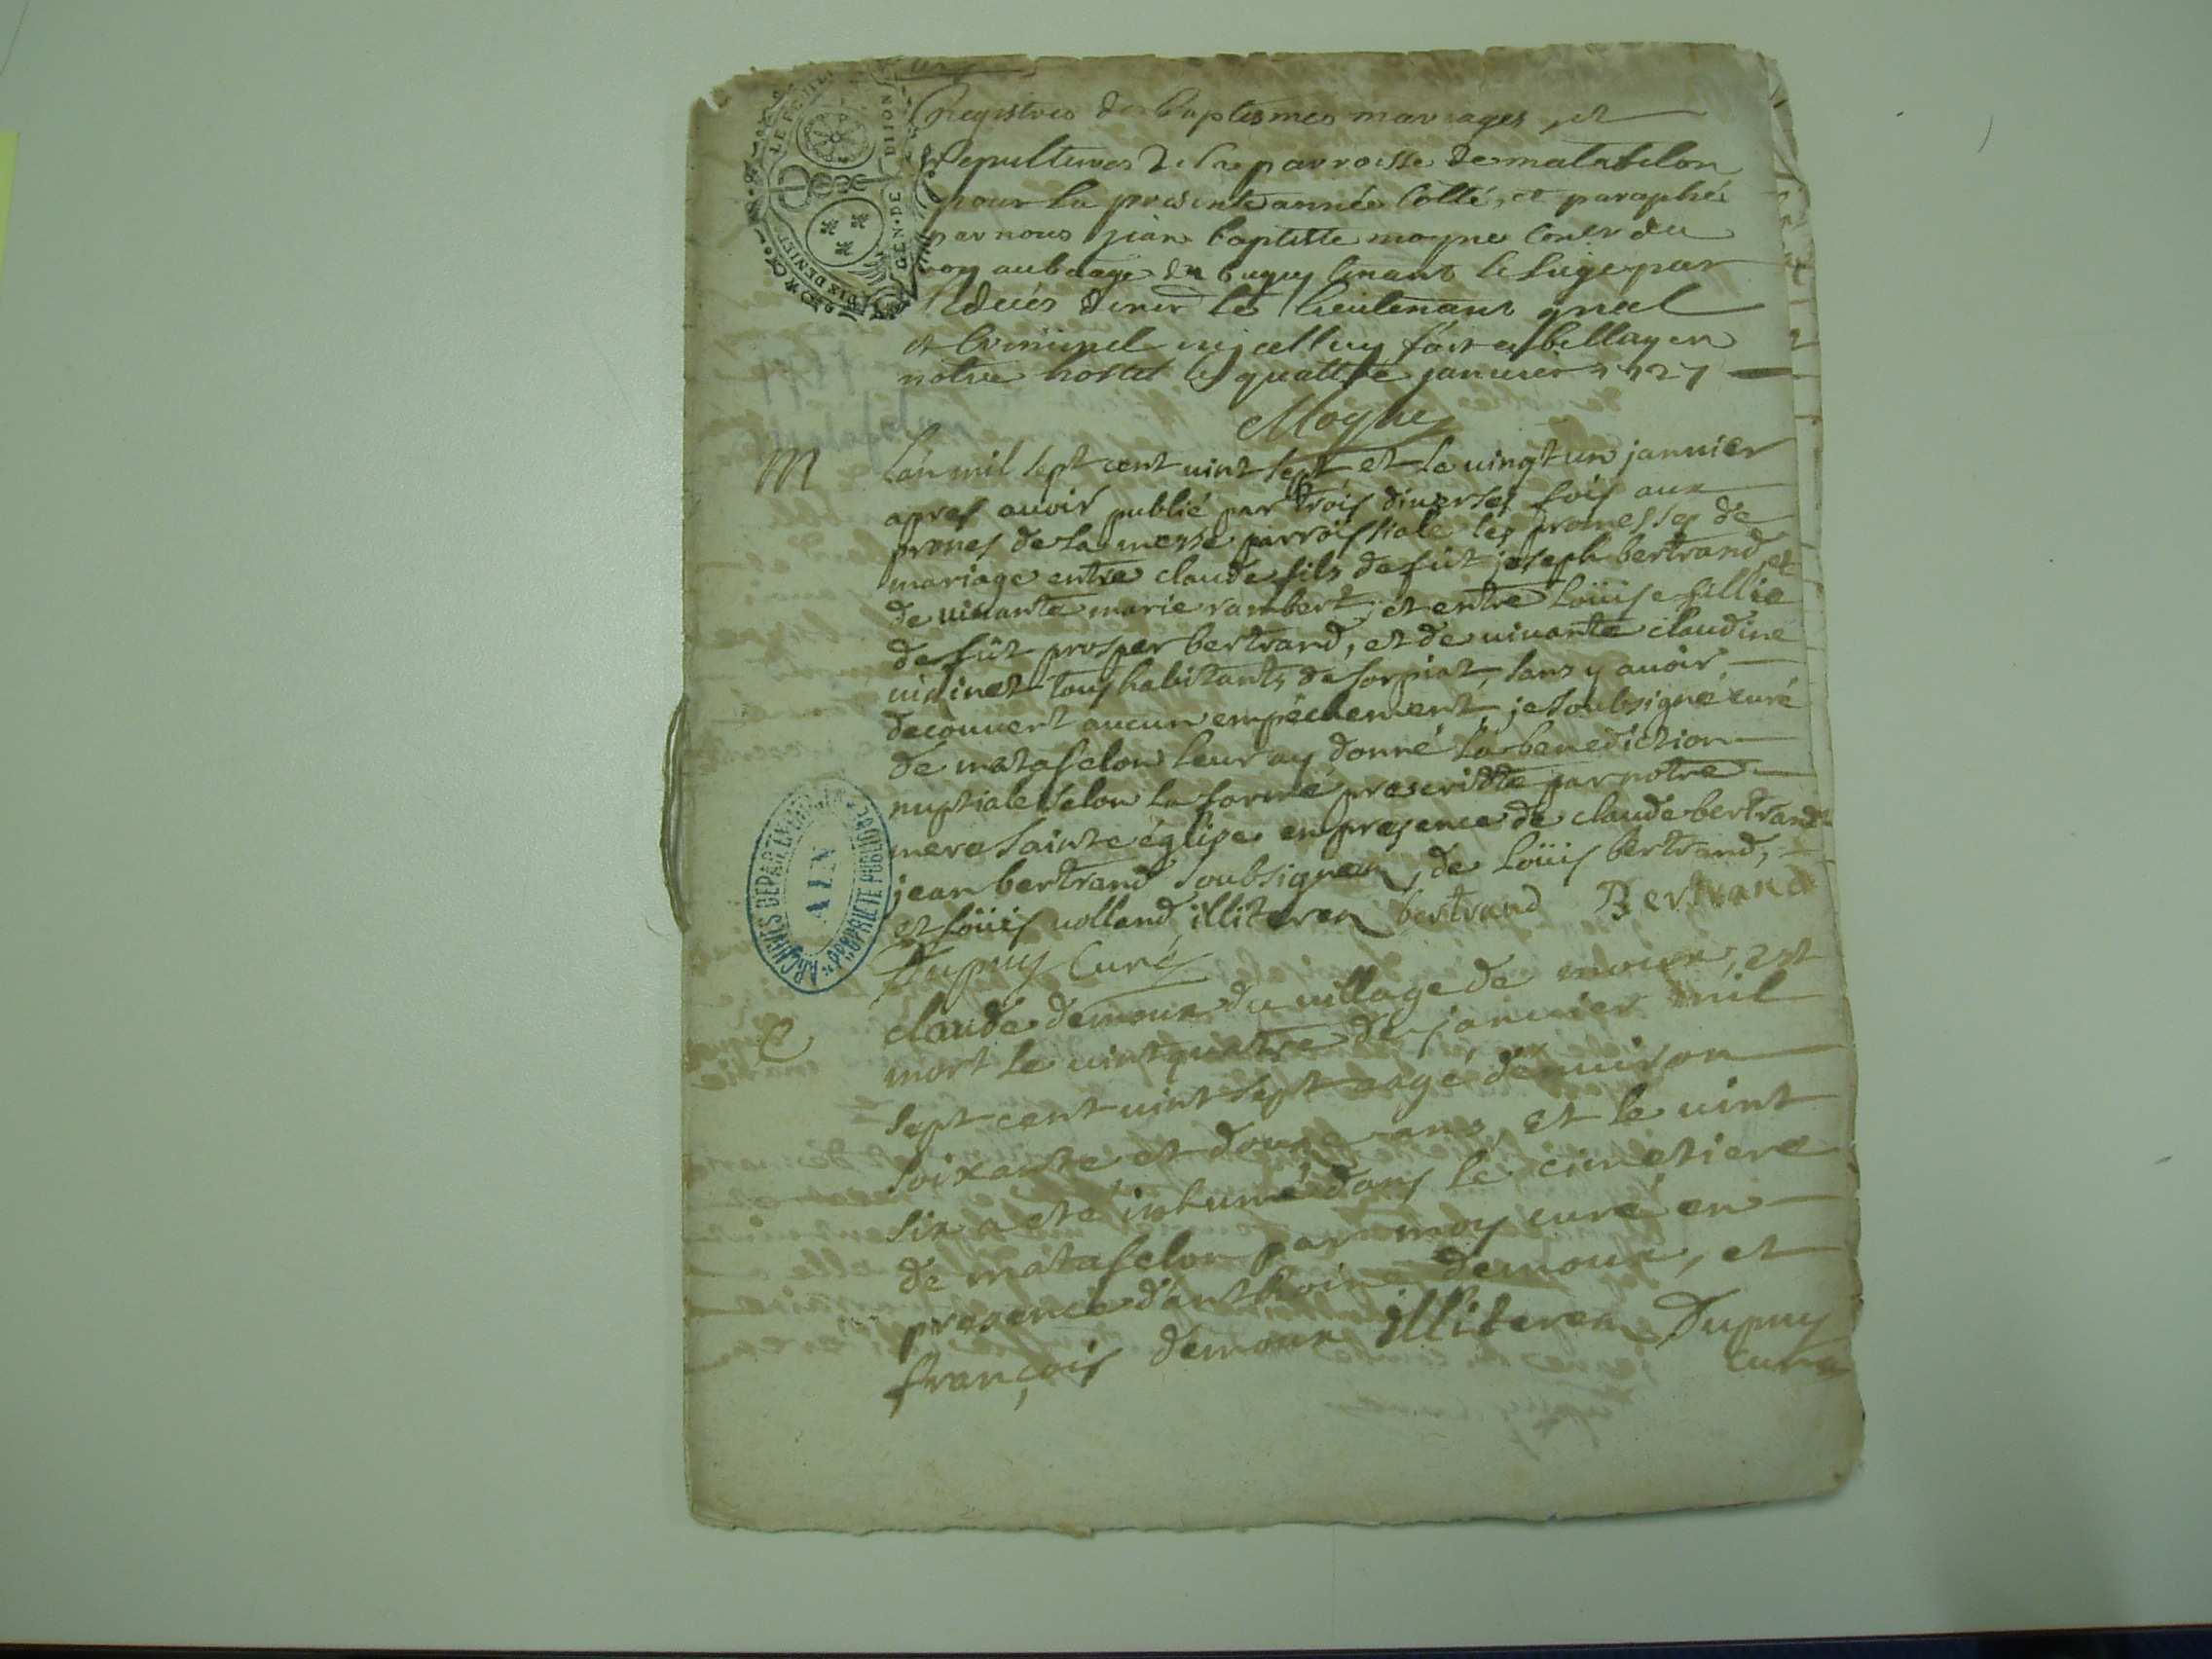 LE FEUILLE
GEN·DE DIJON
SIX DENIERS
Registres de baptesmes mariages et
sepultures de la parroisse de matafelon
pour la presente année Cotté, et paraphé
par nous jean baptiste moyne Coner du
roy au baage du bugey tenant le siege par
le deces de mr le lieutenant gnal
et Criminel en icelluy fait a bellay en
notre hostel le quattre janvier 1727
Moyne
M
L'an mil sept cent vint sept et le vingt un jannier
apres auoir publié par trois diuerses fois aux
prones de la messe parroissiale les promesses de
mariage entre claude fils de fût joseph bertrand, et
de uiuante marie rambert, et entre Loüise fillie
de fût prosper bertrand, et de uiuante claudine
uidinet tous habitants de sorpiat, sans y auoir
decouuert aucun empéchement, je soubsigné curé
de matafelon leur ay donné la benediction
nuptiale selon la forme prescritte par notre
mere sainte église en presence de claude bertrand
jean bertrand soubsignez, de Loüis bertrand,
et Loüis uolland illiterez bertrand Bertrand
Dupuy Curé
ARCHIVES DEPARTEMENTALES
AIN
PROPRIETE PUBLIQUE
claude demoux du uillage de moux, est
mort le uintquatre de januier mil
sept cent uint sept aagé d'enuiron
soixante et douze ans, et le uint
six a eté inhumé dans le cimetiere
de matafelon par moy curé en
presence d'anthoine demoux, et
françois demoux illiterez Dupuy
curé